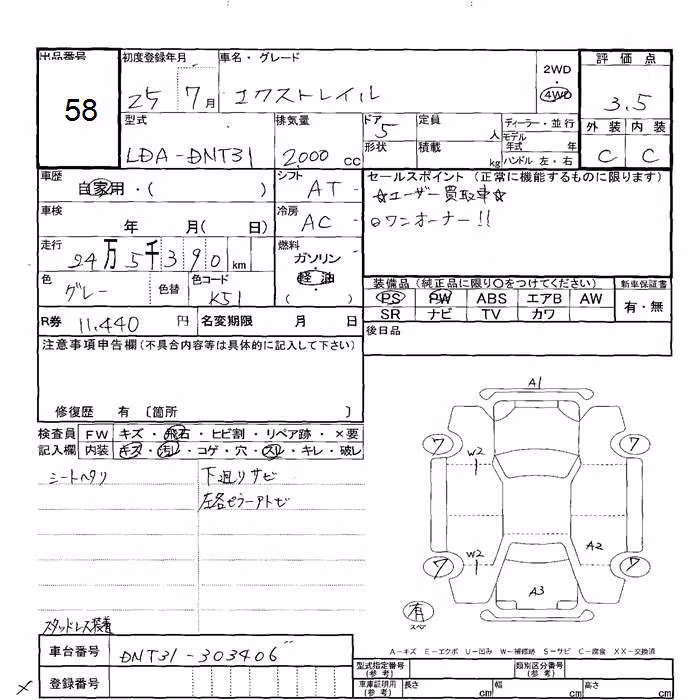 出品番号 初度登録年月 車名・グレード 2WD 評価点
58 25 7月 エクストレイル 4WD 3.5
型式 排気量 ドア 5 定員 人 ディーラー・並行 外装 内装
LDA-DNT31 2000 cc 形状 積載 kg モデル年式 年 C C
ハンドル 左・右
車歴 自家用・( ) シフト AT セールスポイント (正常に機能するものに限ります)
☆ユーザー買取車☆
車検 年 月( 日) 冷房 AC ○ワンオーナー!!
走行 24万5千390km 燃料 ガソリン
軽油
( )
色 グレー 色替 色コード K51
装備品 (純正品に限り○をつけてください) 新車保証書
PS PW ABS エアB AW 有・無
SR ナビ TV カワ
R券 11,440 円 名変期限 月 日 後日品
注意事項申告欄 (不具合内容等は具体的に記入して下さい)
修復歴 有 〔箇所 〕
検査員 FW キズ・飛石・ヒビ割・リペア跡・×要
記入欄 内装 キズ・汚レ・コゲ・穴・スレ・キレ・破レ
シートヘタリ 下廻りサビ
スタッドレス装着
A1
7 W2 7
W2 A2
7 A3 7
有
スペア
A-キズ E-エクボ U-凹み W-補修跡 S-サビ C-腐食 XX-交換済
車台番号 DNT31-303406
登録番号
型式指定番号 (参考) 類別区分番号 (参考)
車庫証明用 (参考) 長さ cm 幅 cm 高さ cm